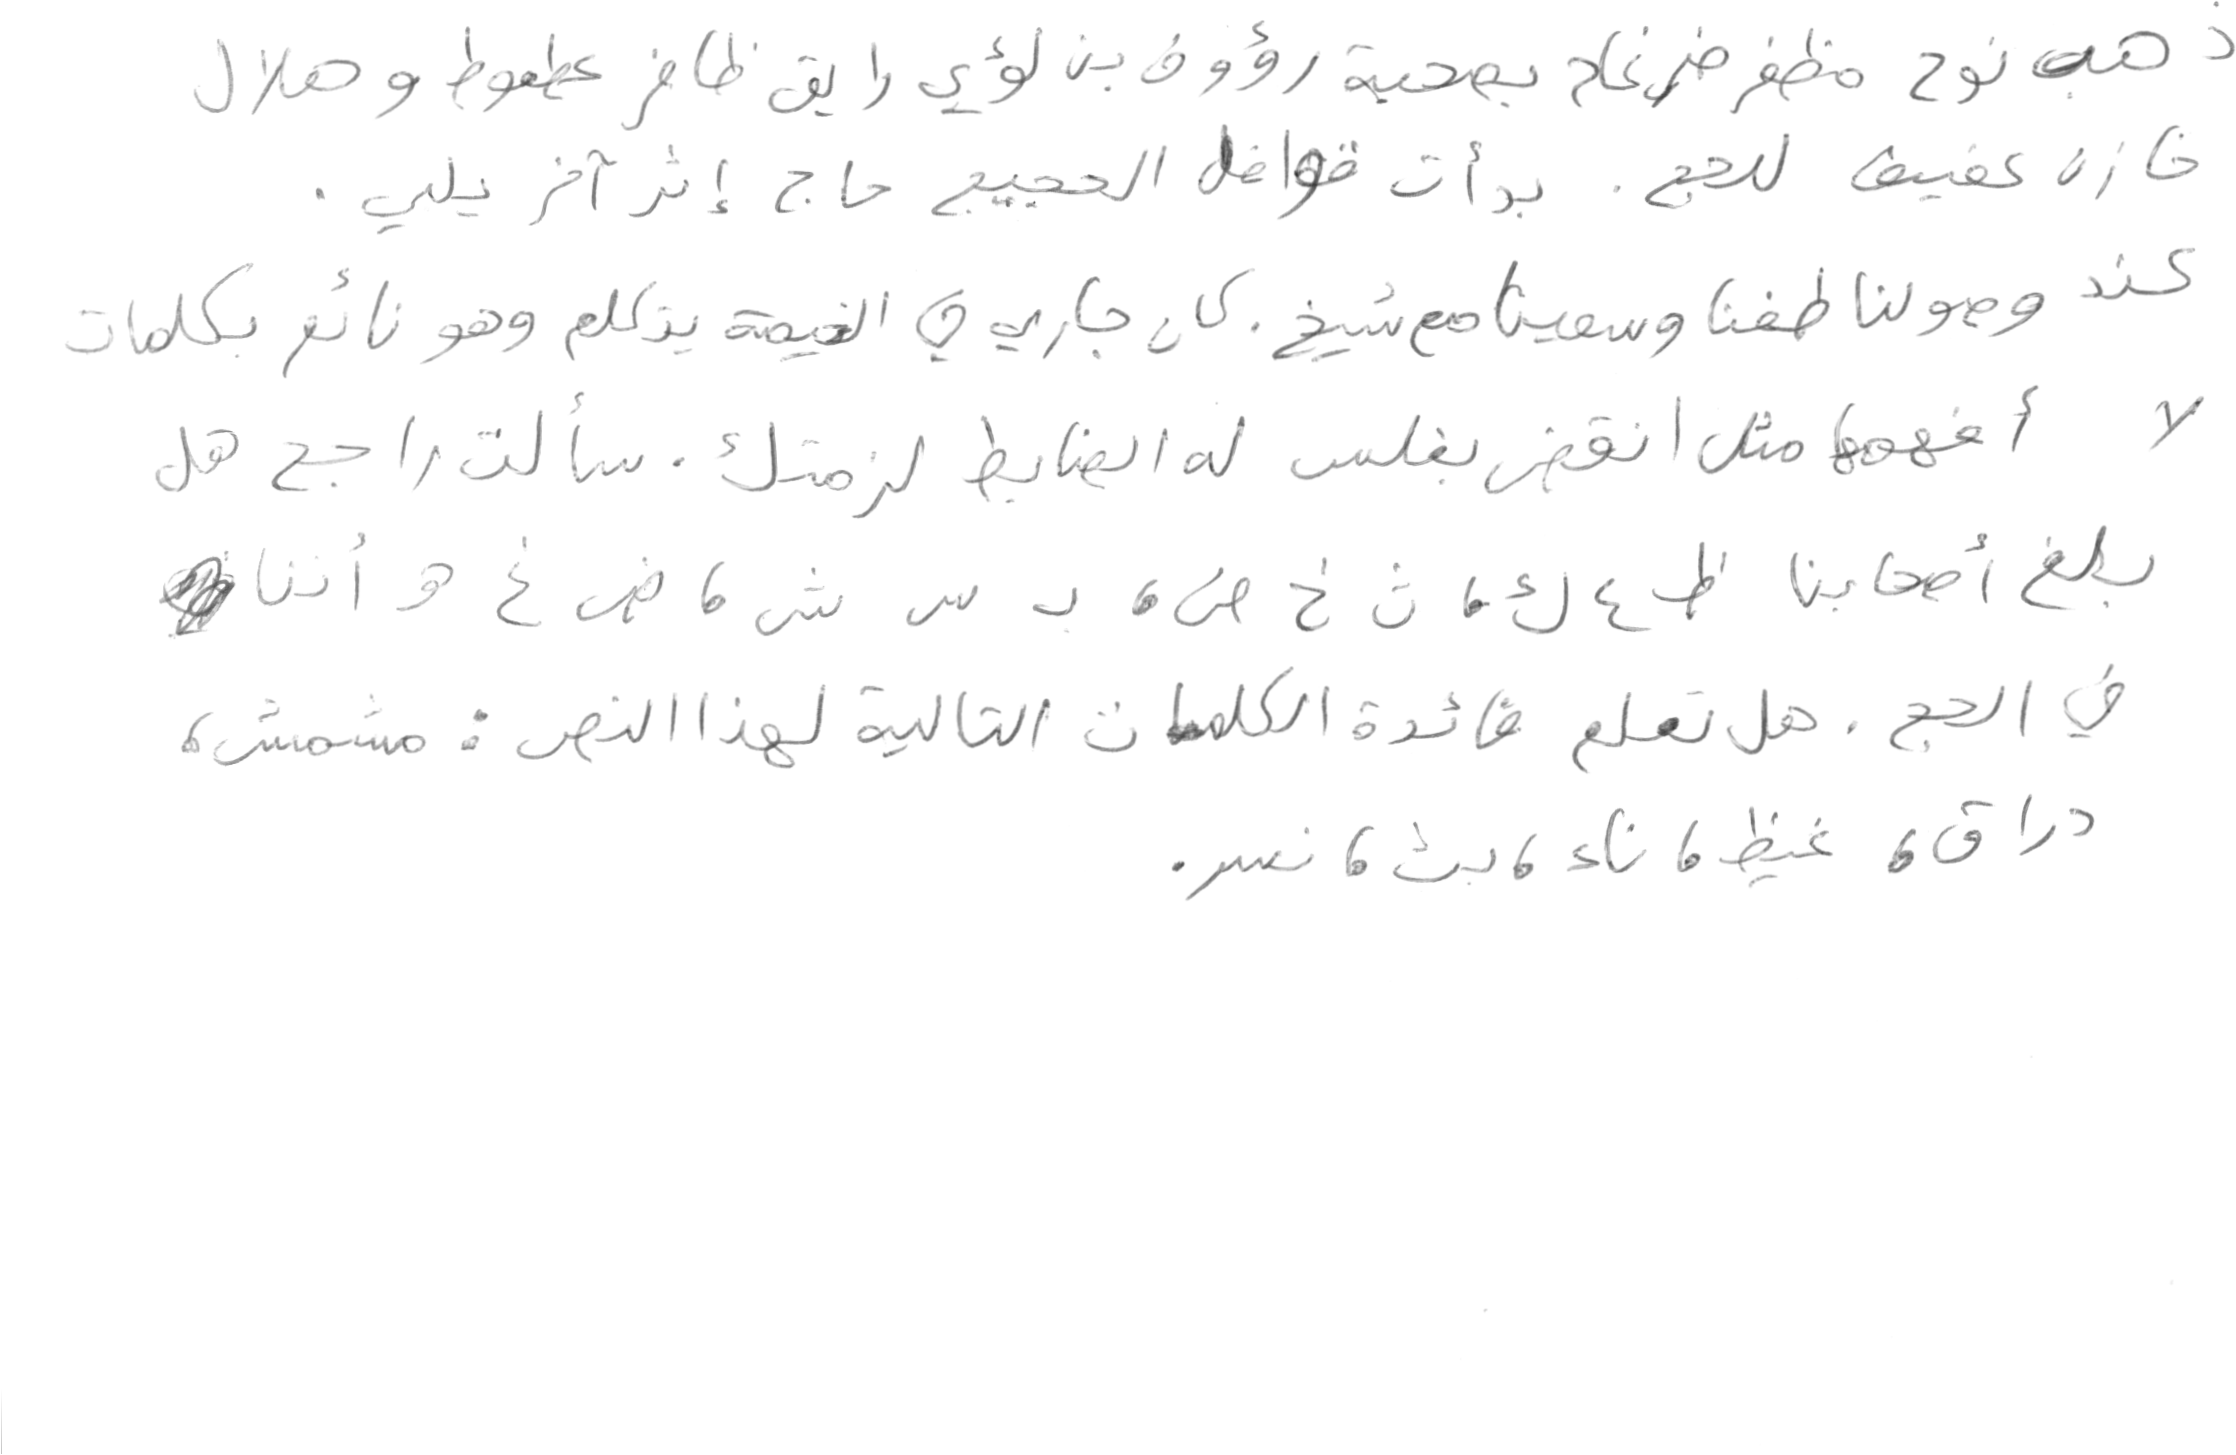 ذهب نوح مظفر ضرغام بصحبة رؤوف بن لؤي رايق ظافر عطعوط و هلال
خازن عفيف للحج. بدأت قوافل الحجيج حاج إثر آخر يلبي.
عند وصولنا طفنا وسعينا مع شيخ. كان جاري في الخيمة يتكلم وهو نائم بكلمات
لا أفهمها مثل انقض بغلس له الضابط لزمتك. سألت راجح هل
بلغ أصحابنا ظ ع ك، ث خ ص، ب س ش، ض غ هـ أننا
في الحج. هل تعلم فائدة الكلمات التالية لهذا النص: مشمش،
دراق، غيظ، ناء، بث، نسر.